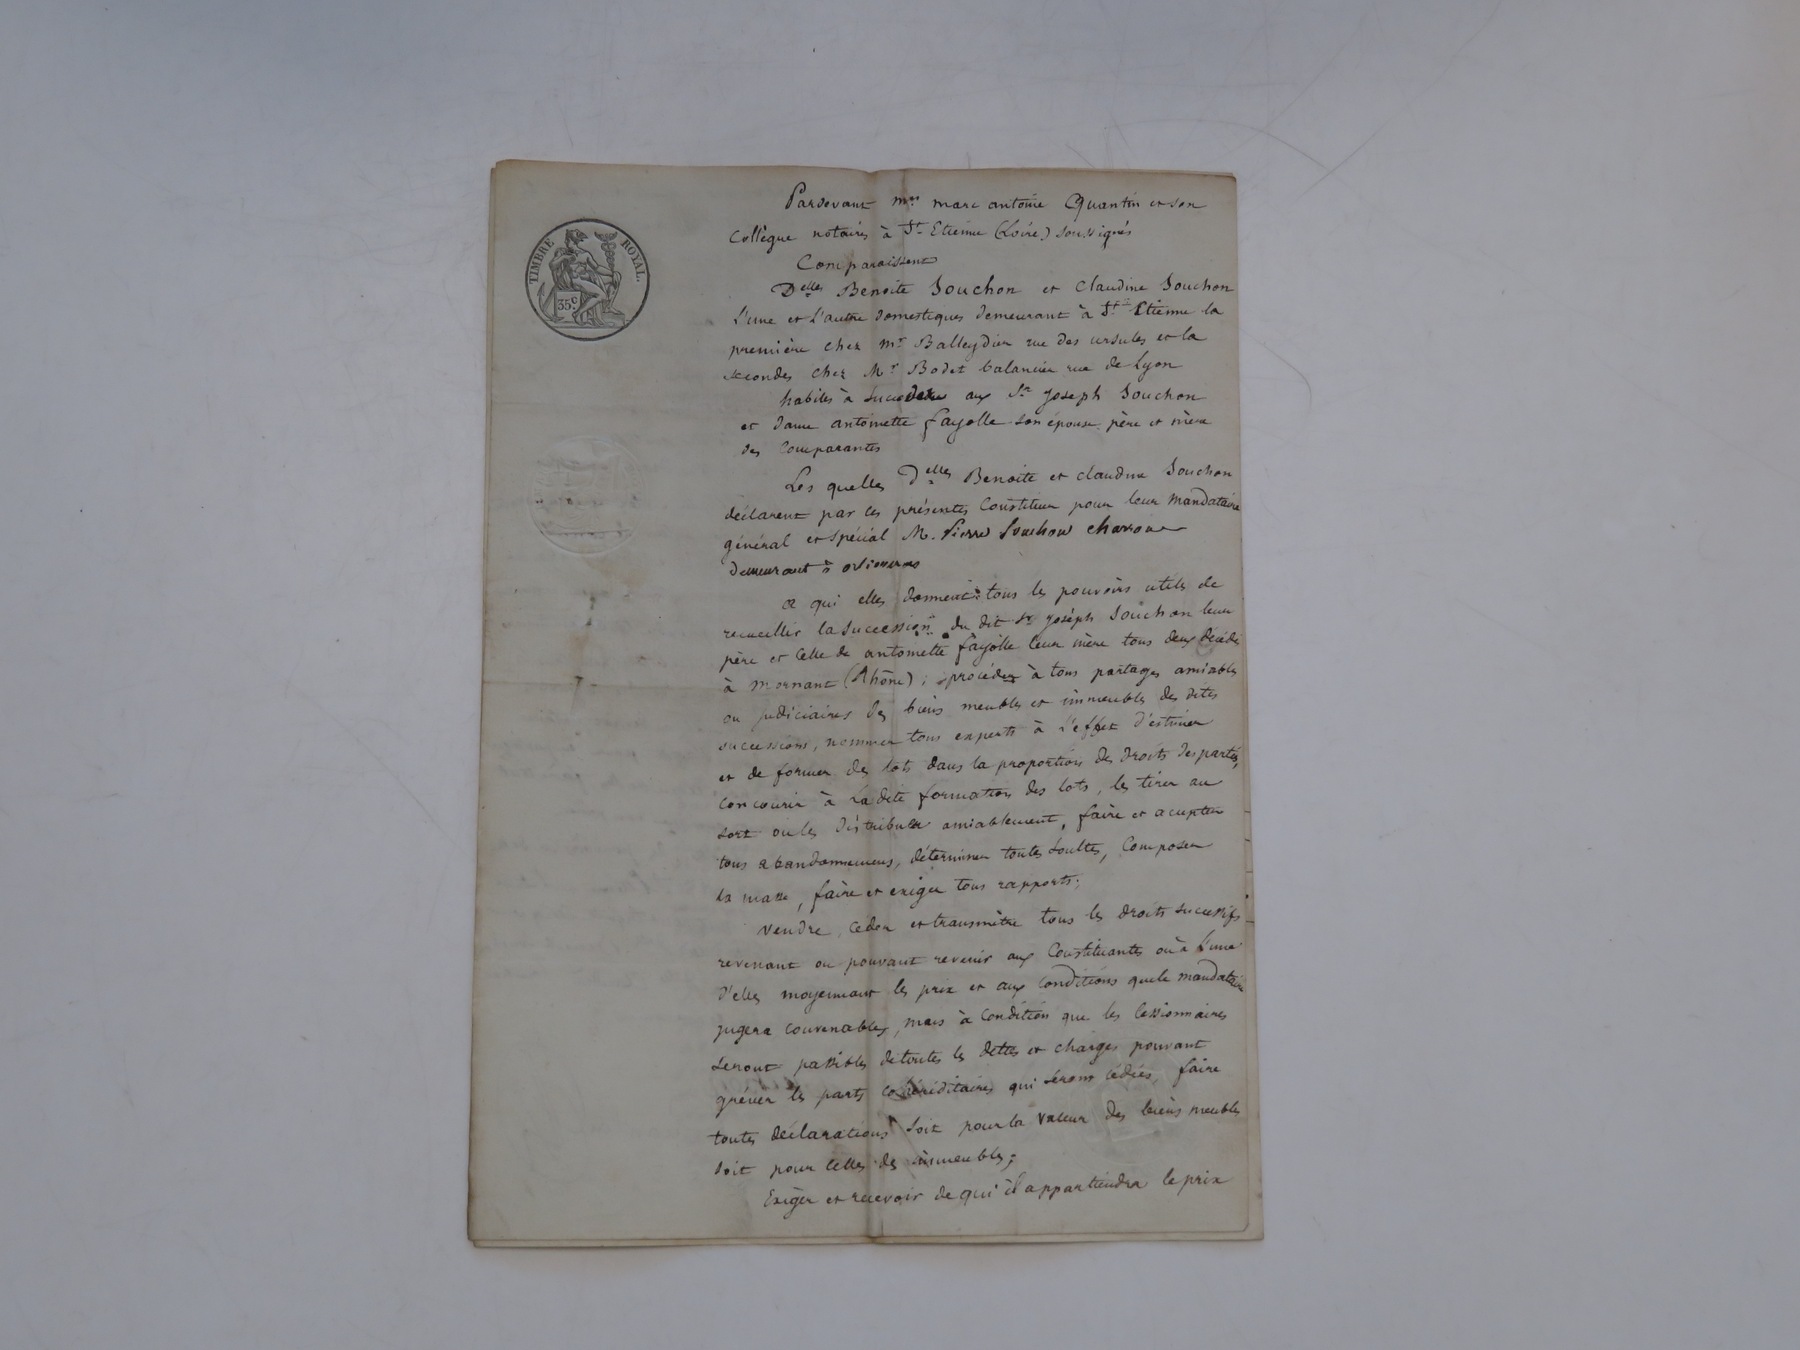 TIMBRE ROYAL.
35c
Pardevant mes marc antoine Quantin et son
Collègue notaires à St. Etienne (Loire) soussignés
Comparaissent
Delles Benoite Souchon et claudine Souchon
L'une et L'autre domestiques demeurant à St. Etienne la
première chez mr Balleydier rue des ursules et la
secondes chez Mr Bodet balancier rue de Lyon
habiles à succeder aux Sr joseph Souchon
et dame antoinette fayolle son épouse père et mère
des comparantes
Les quelles Delles Benoite et claudine Souchon
déclarent par ces présentes Constituer pour leur mandataire
général et spécial M. Pierre Souchon charron
demeurant à
a qui elles donnent tous les pouvoirs utiles de
recueillir la succession du dit Sr joseph Souchon leur
père et Celle de antoinette fayolle leur mère tous deux décédés
à mornant (Rhône) ; procéder à tous partages amiables
ou judiciaires des biens meubles et immeubles des dites
successions, nommer tous experts à l'effet d'estimer
et de former des lots dans la proportion des droits des parties,
concourir à La dite formation des lots, les tirer au
sort ou les distribuer amiablement, faire et accepter
tous abandonnemens, déterminer toutes soultes, Composer
la masse, faire et exiger tous rapports ;
vendre, céder et transmetre tous les droits successifs
revenant ou pouvant revenir aux Constituantes ou à l'une
d'elles moyennant les prix et aux Conditions que le mandataire
jugera couvenables, mais à Condition que les Cessionnaires
seront passibles de toutes les dettes et charges pouvant
gréver les parts cohéréditaires qui seront cédées, faire
toutes déclarations soit pour la valeur des biens meubles
soit pour Celles des immeubles ;
Exiger et recevoir de qui il appartiendra le prix